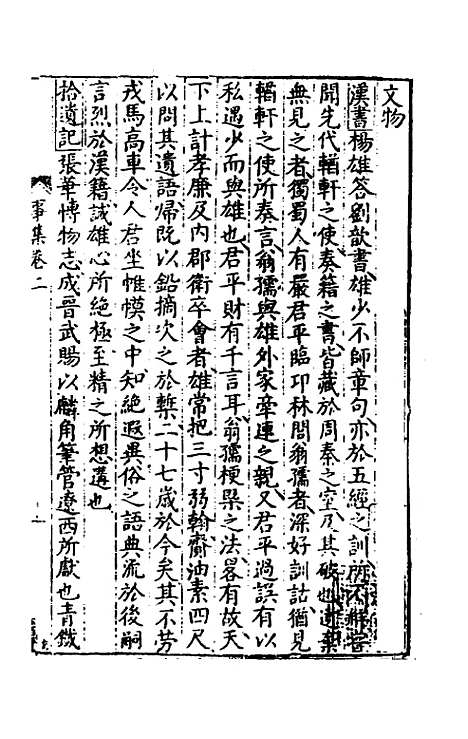 文物
漢書楊雄答劉歆書雄少不師章句亦於五經之訓所不解嘗
聞先代輶軒之使奏籍之書皆藏於周秦之室及其破也遺棄
無見之者獨蜀人有嚴君平臨邛林閭翁孺者深好訓詁猶見
輶軒之使所奏言翁孺與雄外家牽連之親又君平過誤有以
私遇少而與雄也君平財有千言耳翁孺梗槩之法畧有故天
下上計孝廉及內郡衛卒會者雄常把三寸弱翰齎油素四尺
以問其遺語歸既以鉛摘次之於槧二十七歲於今矣其不勞
戎馬高車令人君坐帷幙之中知絕遐異俗之語典流於後嗣
言烈於漢籍誠雄心所絕極至精之所想遘也
拾遺記張華博物志成晋武賜以麟角筆管遼西所獻也青鐵
事集卷二